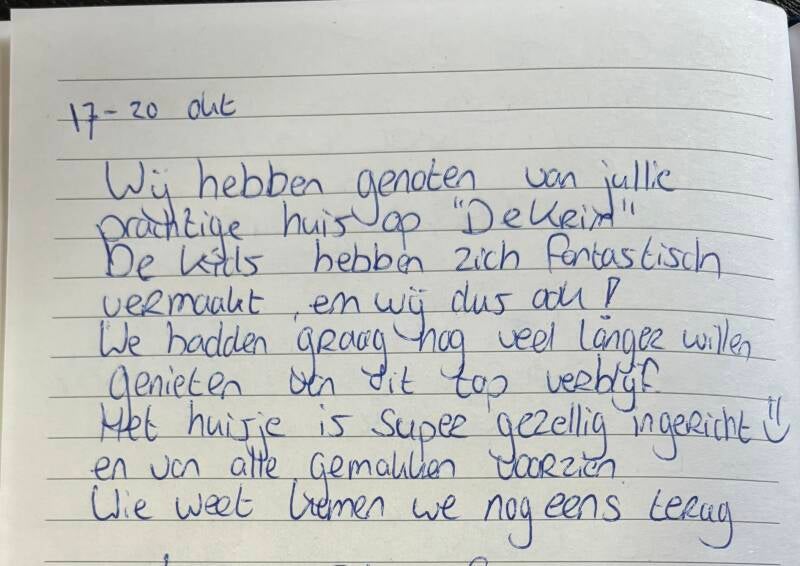 17-20 okt
Wij hebben genoten van jullie
prachtige huis op "De Krim"
De kids hebben zich fantastisch
vermaakt, en wij dus ook!
We hadden graag nog veel langer willen
genieten van dit top verblijf
Het huisje is super gezellig ingericht
en van alle gemakken voorzien
Wie weet komen we nog eens terug